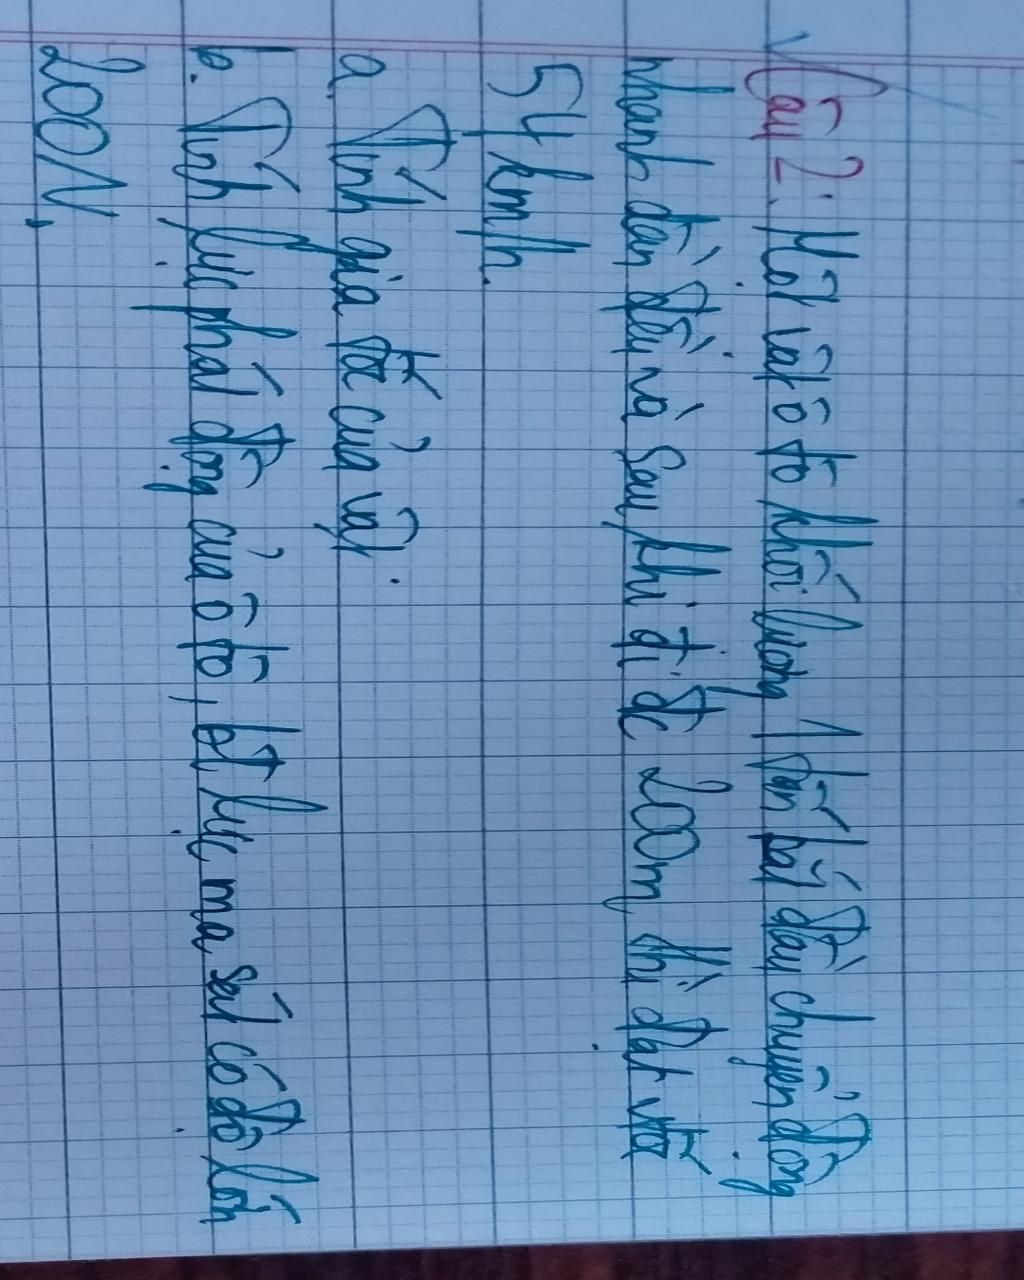 Câu 2: Một vật ô tô khối lượng 1 tấn bắt đầu chuyển động
nhanh dần đều và sau khi đi đc 200m thì đạt vtốc
54 km/h.
a. Tính gia tốc của vật.
b. Tính lực phát động của ô tô, bt lực ma sát có độ lớn
200N.